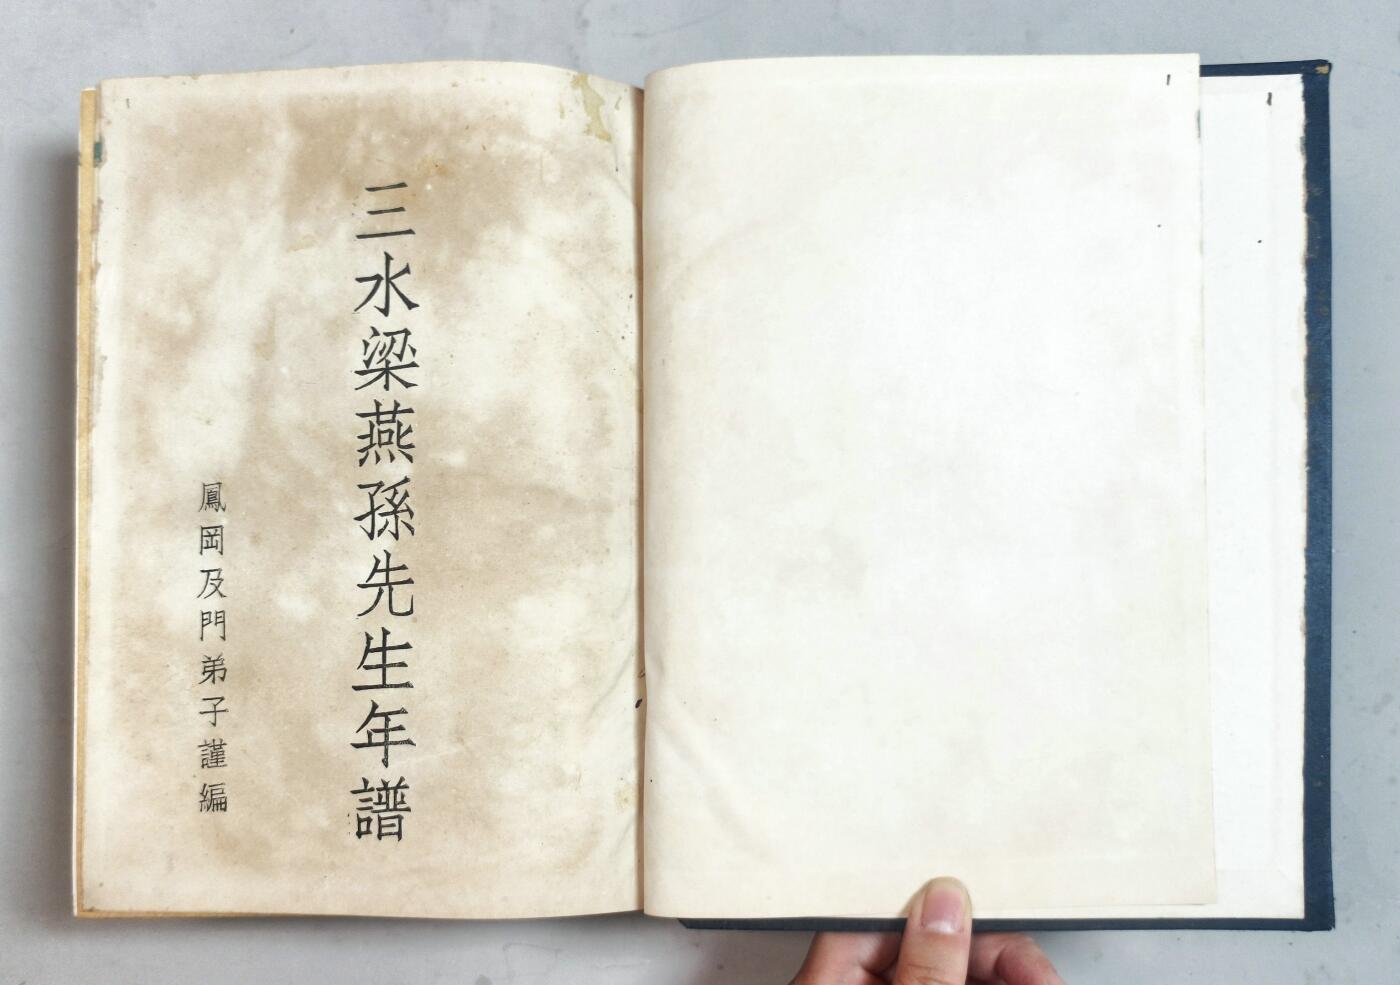 三水梁燕孫先生年譜
鳳岡及門弟子謹編